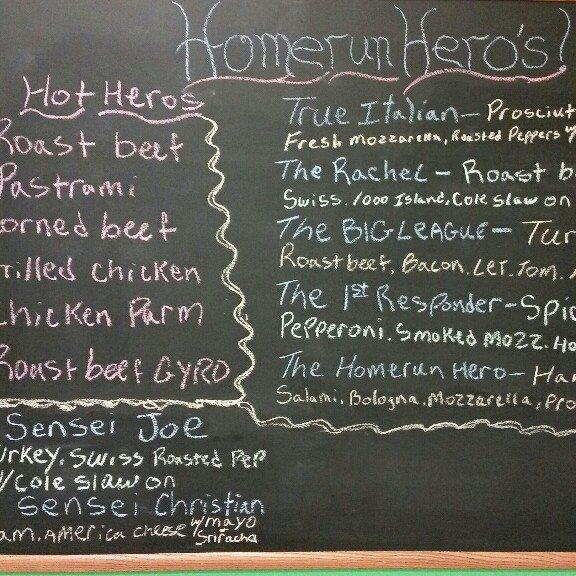 Homerun Hero's!
Hot Heros
Roast beef
Pastrami
orned beef
rilled chicken
chicken Parm
Roast beef GYRO
Sensei Joe
urkey. Swiss Roasted Pep
w/cole slaw on
Sensei Christian
am. America cheese w/mayo
Sriracha
True Italian - Prosciut
Fresh mozzarella, Roasted Peppers
The Rachel - Roast b
Swiss. 1000 Island, Cole slaw on
The BIG LEAGUE - Tur
Roastbeef, Bacon. Let. Tom.
The 1st Responder - Spic
Pepperoni. Smoked Mozz. Ho
The Homerun Hero - Ha
Salami, Bologna, Mozzarella, Pro